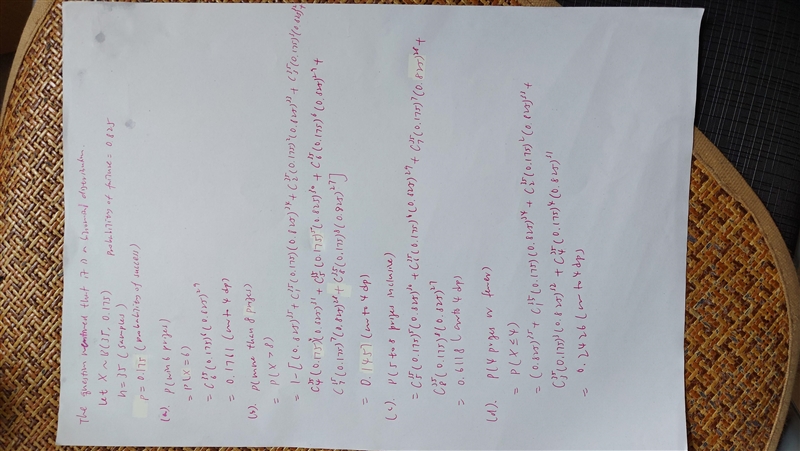 The question mentioned that it is a binomial distribution.
Let X ~ B(35, 0.175)
n = 35 (samples) Probability of failure = 0.825
p = 0.175 (probability of success)
(a). P(win 6 prizes)
= P(X=6)
= C₆³⁵(0.175)⁶(0.825)²⁹
= 0.1761 (corr to 4 dp)
(b). P(more than 8 prizes)
= P(X>8)
= 1-[(0.825)³⁵+C₁³⁵(0.175)(0.825)³⁴+C₂³⁵(0.175)²(0.825)³³+C₃³⁵(0.175)³(0.825)³²+
C₄³⁵(0.175)⁴(0.825)³¹+C₅³⁵(0.175)⁵(0.825)³⁰+C₆³⁵(0.175)⁶(0.825)²⁹+
C₇³⁵(0.175)⁷(0.825)²⁸+C₈³⁵(0.175)⁸(0.825)²⁷]
= (corr to 4 dp)
(c). P(5 to 8 prizes inclusive)
= C₅³⁵(0.175)⁵(0.825)³⁰+C₆³⁵(0.175)⁶(0.825)²⁹+C₇³⁵(0.175)⁷(0.825)²⁸+
C₈³⁵(0.175)⁸(0.825)²⁷
= 0.6118 (corr to 4 dp)
(d). P(4 prizes or fewer)
= P(X≤4)
= (0.825)³⁵+C₁³⁵(0.175)(0.825)³⁴+C₂³⁵(0.175)²(0.825)³³+
C₃³⁵(0.175)³(0.825)³²+C₄³⁵(0.175)⁴(0.825)³¹
= 0.2426 (corr to 4 dp)